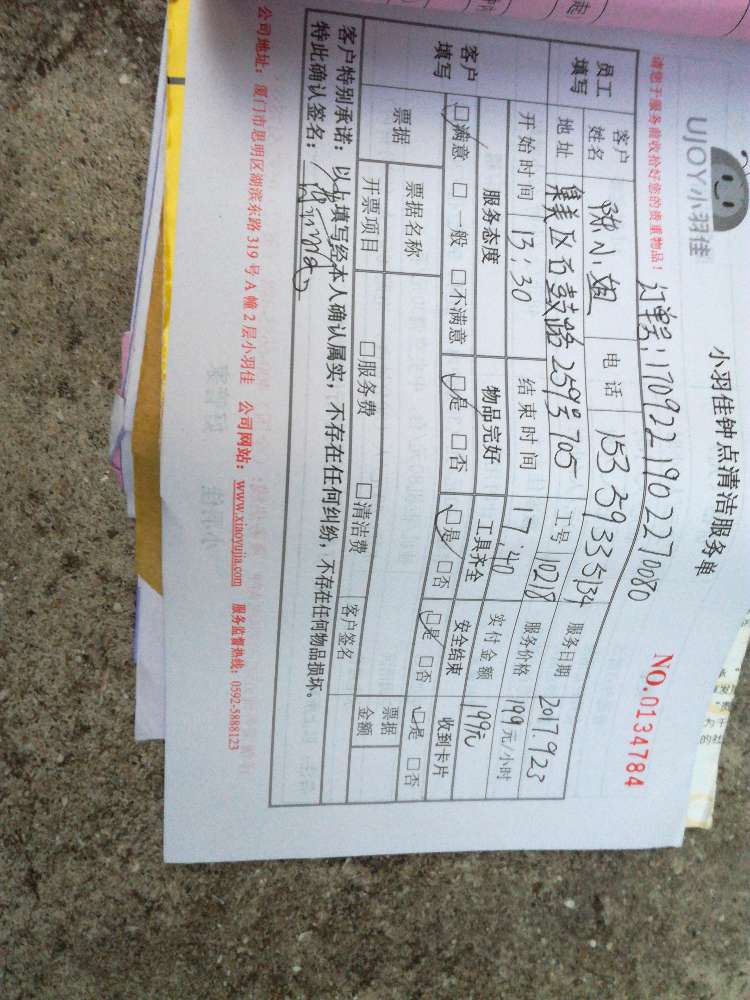 UJOY小羽佳
小羽佳钟点清洁服务单
NO.0134784
请您于服务前收拾好您的贵重物品！
订单号:1709221902270080
员工填写
客户姓名 小姐 电话 15359335134 服务日期 2017.9.23
地址 集美区石鼓路259号705 工号 10218 服务价格 199元/小时
开始时间 13:30 结束时间 17:40 实付金额 199元
客户填写
服务态度 物品完好 工具齐全 安全结束 收到卡片
☑满意 □一般 □不满意 ☑是 □否 ☑是 □否 ☑是 □否 ☑是 □否
票据 票据名称 客户签名 票据金额
开票项目 □服务费 □清洁费
客户特别承诺：以上填写经本人确认属实，不存在任何纠纷，不存在任何物品损坏。
特此确认签名：
公司地址：厦门市思明区湖滨东路319号A幢2层小羽佳 公司网站：www.xiaoyujia.com 服务监督热线：0592-5888123